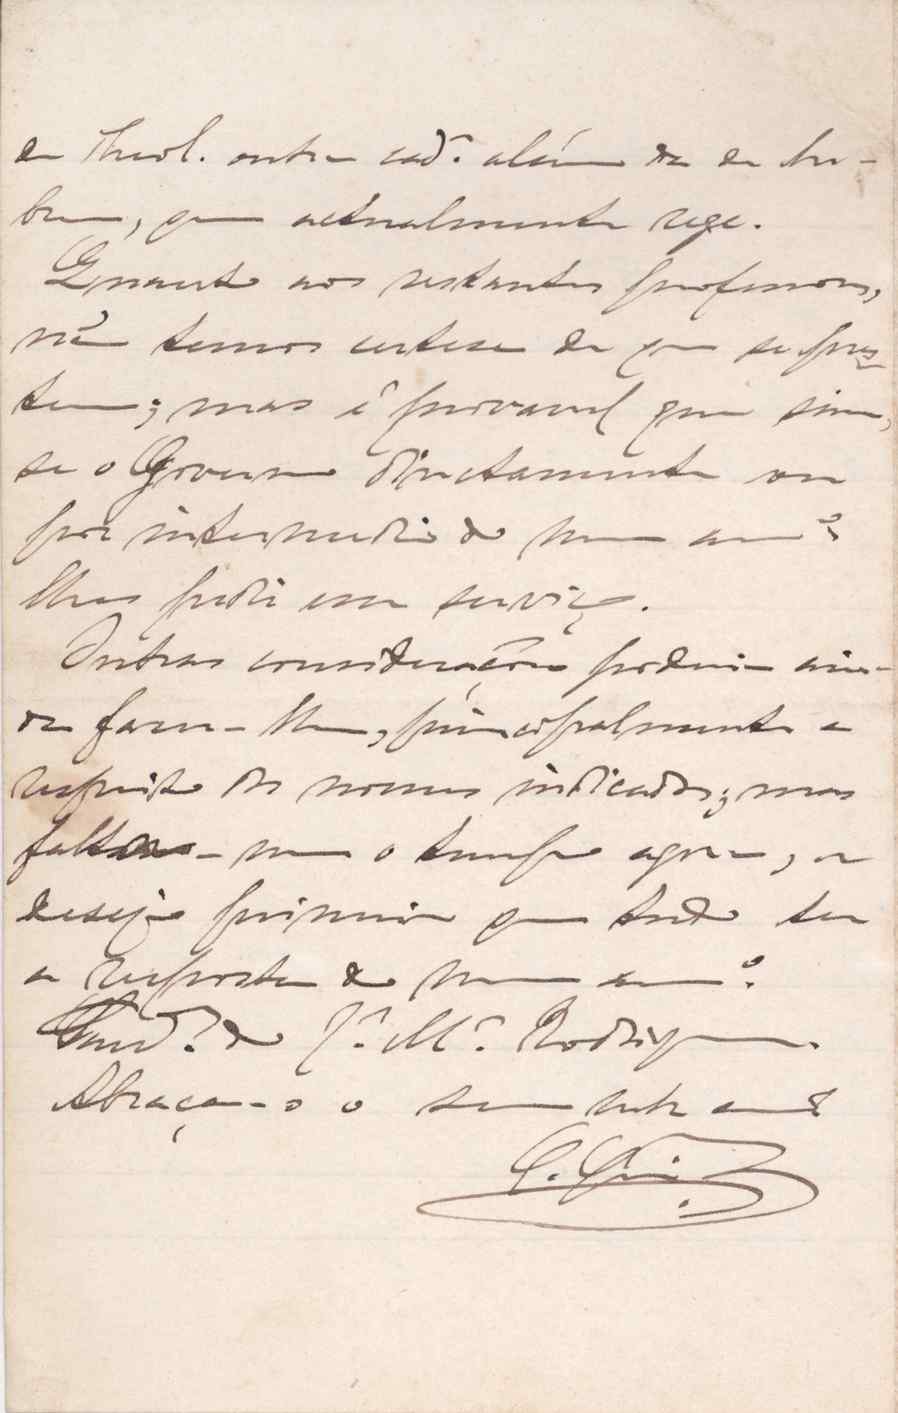 de Theol. outra cad.ª além da de he-
breu, que actualmente rege.
Quanto aos restantes professores,
não temos certesa de que se pres-
tem; mas é provavel que sim,
se o Governo directamente ou
por intermedio do meu am.º
lhes pedir esse serviço.
Outras considerações poderia ain-
da fazer-lhe, principalmente a
respeito dos nomes indicados; mas
falta-me o tempo agora, e
desejo primeiro que tudo ter
a resposta do meu am.º
Saud.es do J.e M.a Rodrigues.
Abraça-o o seu am.º